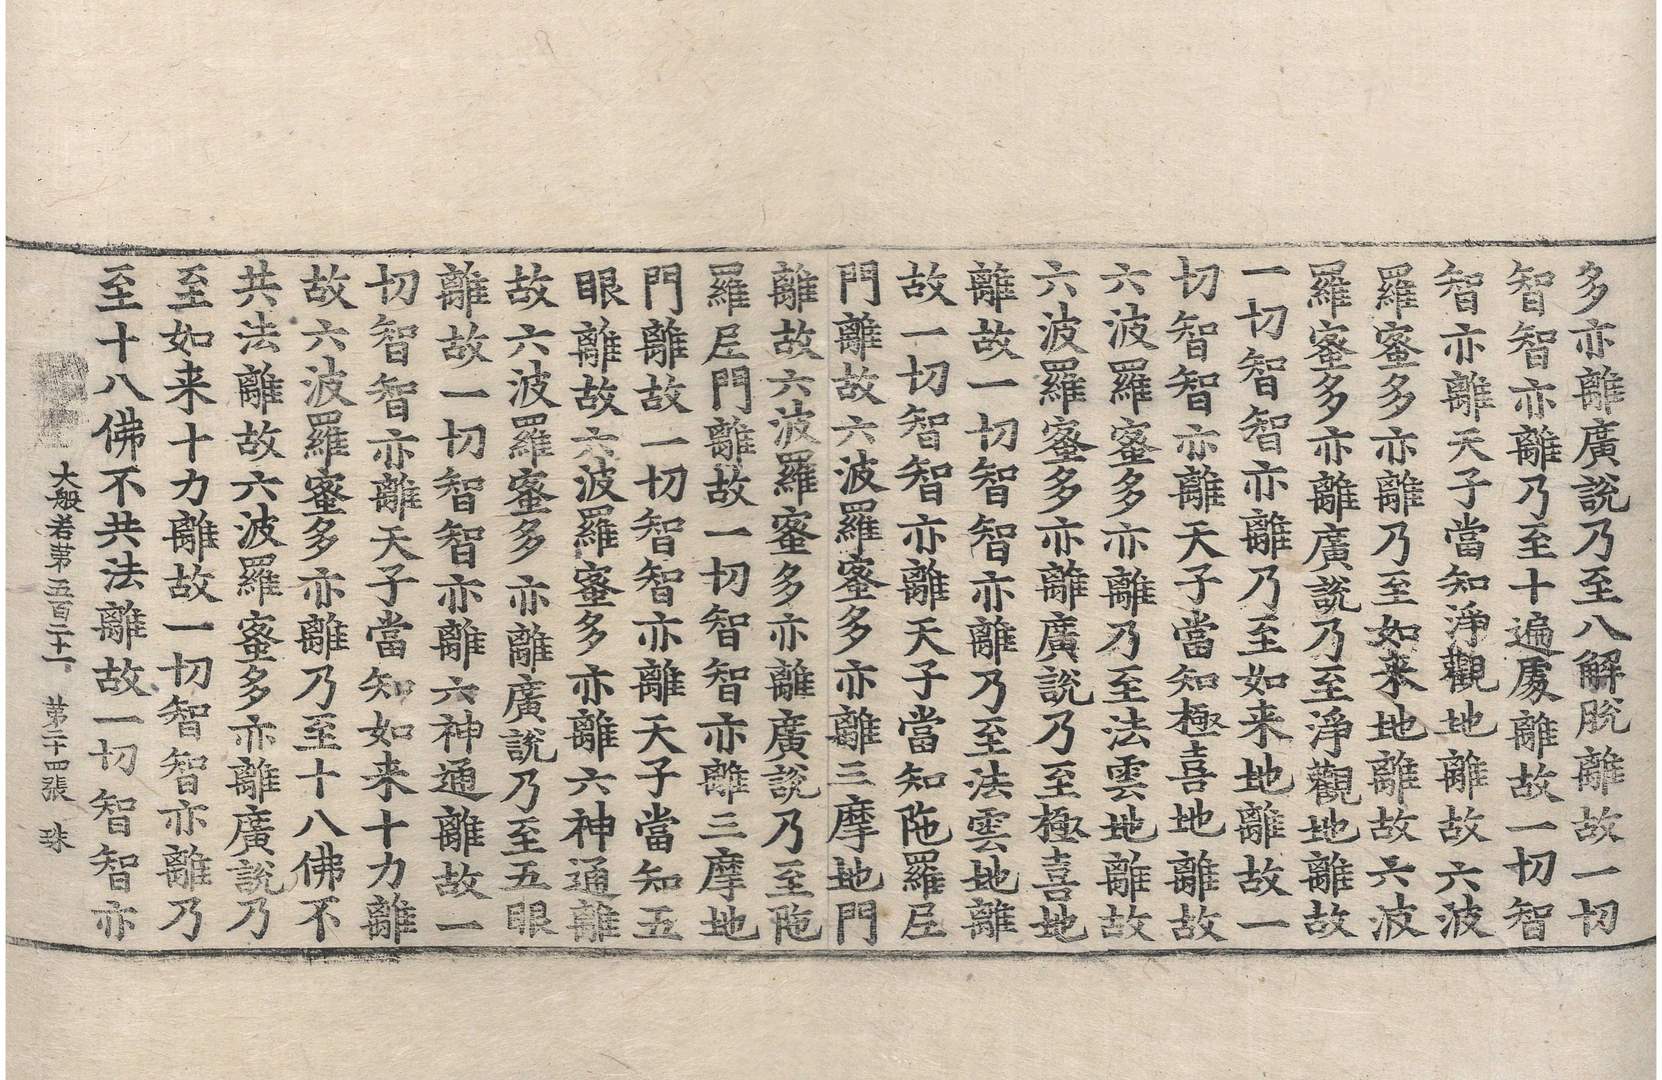 多亦離廣說乃至八解脫離故一切
智智亦離乃至十遍處離故一切智
智亦離天子當知淨觀地離故六波
羅蜜多亦離乃至如来地離故六波
羅蜜多亦離廣說乃至淨觀地離故
一切智智亦離乃至如来地離故一
切智智亦離天子當知極喜地離故
六波羅蜜多亦離乃至法雲地離故
六波羅蜜多亦離廣說乃至極喜地
離故一切智智亦離乃至法雲地離
故一切智智亦離天子當知陁羅尼
門離故六波羅蜜多亦離三摩地門
離故六波羅蜜多亦離廣說乃至陁
羅尼門離故一切智智亦離三摩地
門離故一切智智亦離天子當知五
眼離故六波羅蜜多亦離六神通離
故六波羅蜜多亦離廣說乃至五眼
離故一切智智亦離六神通離故一
切智智亦離天子當知如来十力離
故六波羅蜜多亦離乃至十八佛不
共法離故六波羅蜜多亦離廣說乃
至如来十力離故一切智智亦離乃
至十八佛不共法離故一切智智亦
大般若第五百二十一 第二十四張 珠